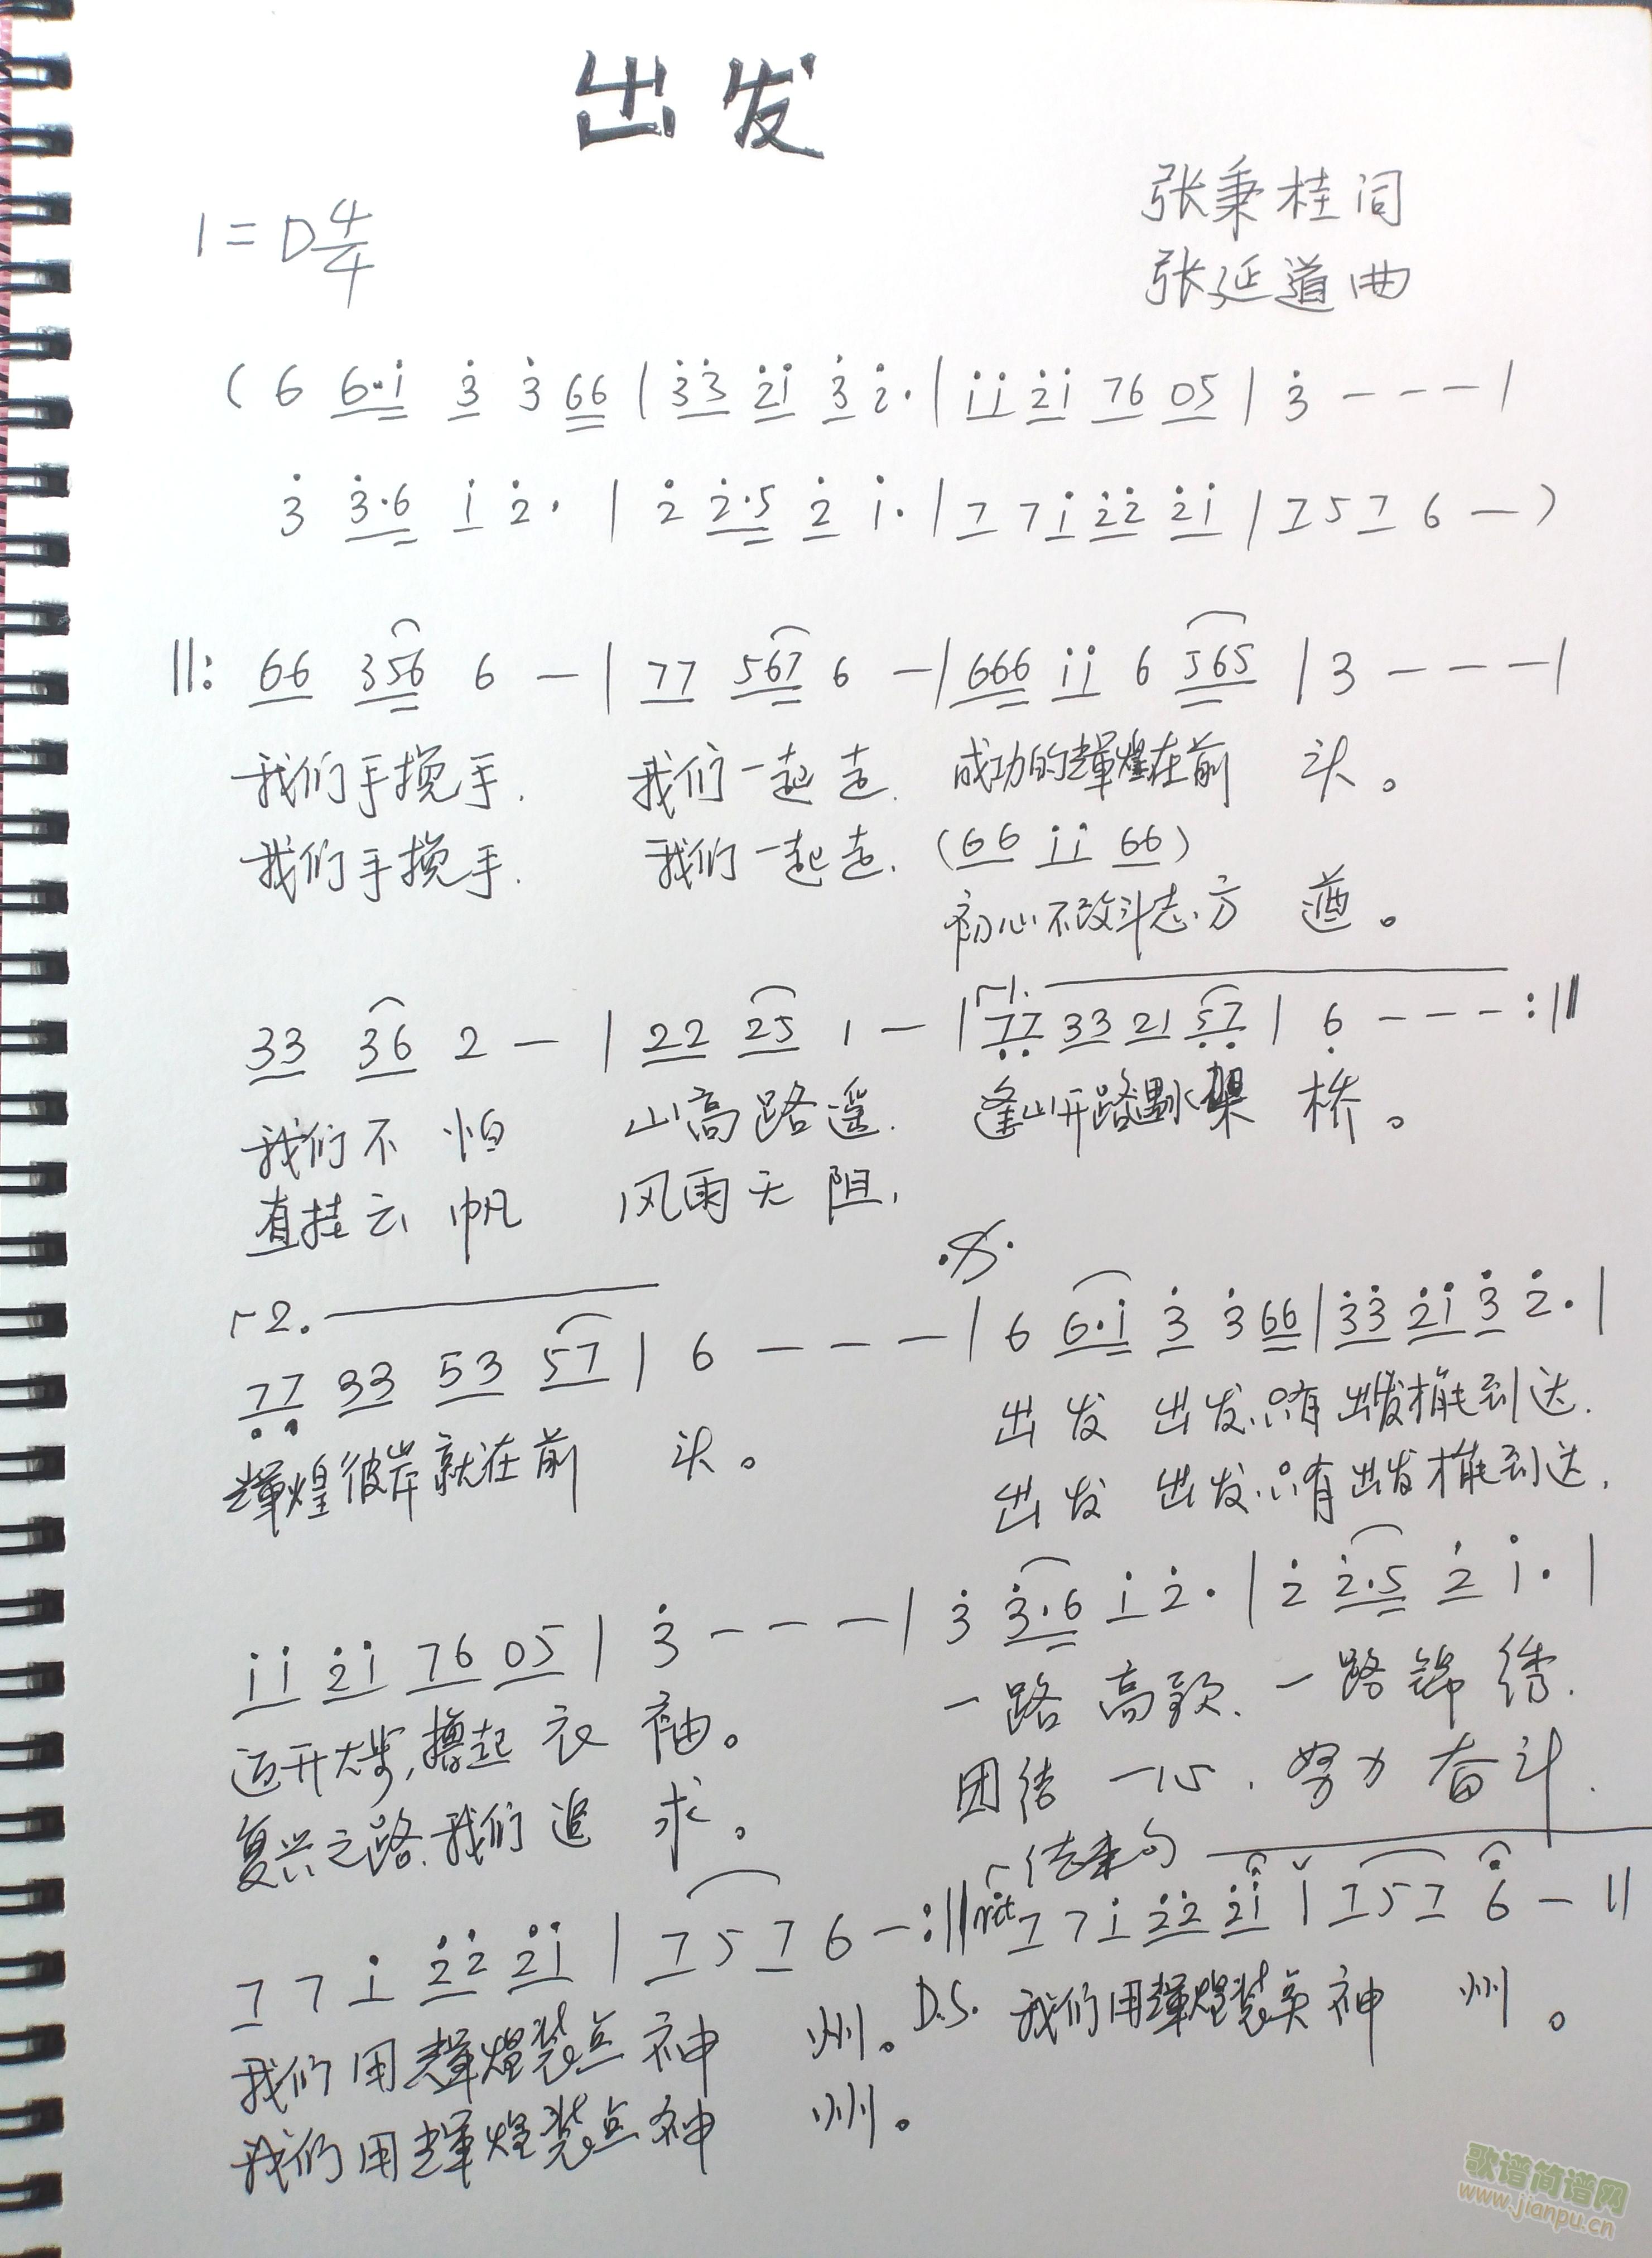 出发
1=D 4/4
张秉桂词
张延道曲
(6 6·i 3 3 66 | 33 2i 3 2· | ii 2i 76 05 | 3 - - - |
3 3·6 i 2· | 2 2·5 2 i· | 7 7 i 22 2i | 7 5 7 6 -)
||: 66 356 6 - | 77 567 6 - | 666 ii 6 565 | 3 - - - |
我们手挽手. 我们一起走. 成功的辉煌在前 头。
我们手挽手. 我们一起走. (66 ii 66)
初心不改斗志方 遒。
┌1.
33 36 2 - | 22 25 1 - | 77 33 21 57 | 6 - - - :||
我们不 怕 山高路遥. 逢山开路遇水架 桥。
直挂云 帆 风雨无 阻,
┌2.
77 33 53 57 | 6 - - - | 6 6·i 3 3 66 | 33 2i 3 2· |
辉煌彼岸就在前 头。 出 发 出发.只有出发才能到达.
出 发 出发.只有出发才能到达.
ii 2i 76 05 | 3 - - - | 3 3·6 i 2· | 2 2·5 2 i· |
迈开大步,撸起 衣 袖。 一路 高歌. 一路锦 绣.
复兴之路.我们追 求。 团结 一心. 努力 奋斗.
┌结束句
7 7 i 22 2i | 7 5 7 6 - :|| rit 7 7 i 22 2i | 7 5 7 6 - ||
我们用辉煌装点神 州。 D.S. 我们用辉煌装点神 州。
我们用辉煌装点神 州。
歌谱简谱网
www.jianpu.cn